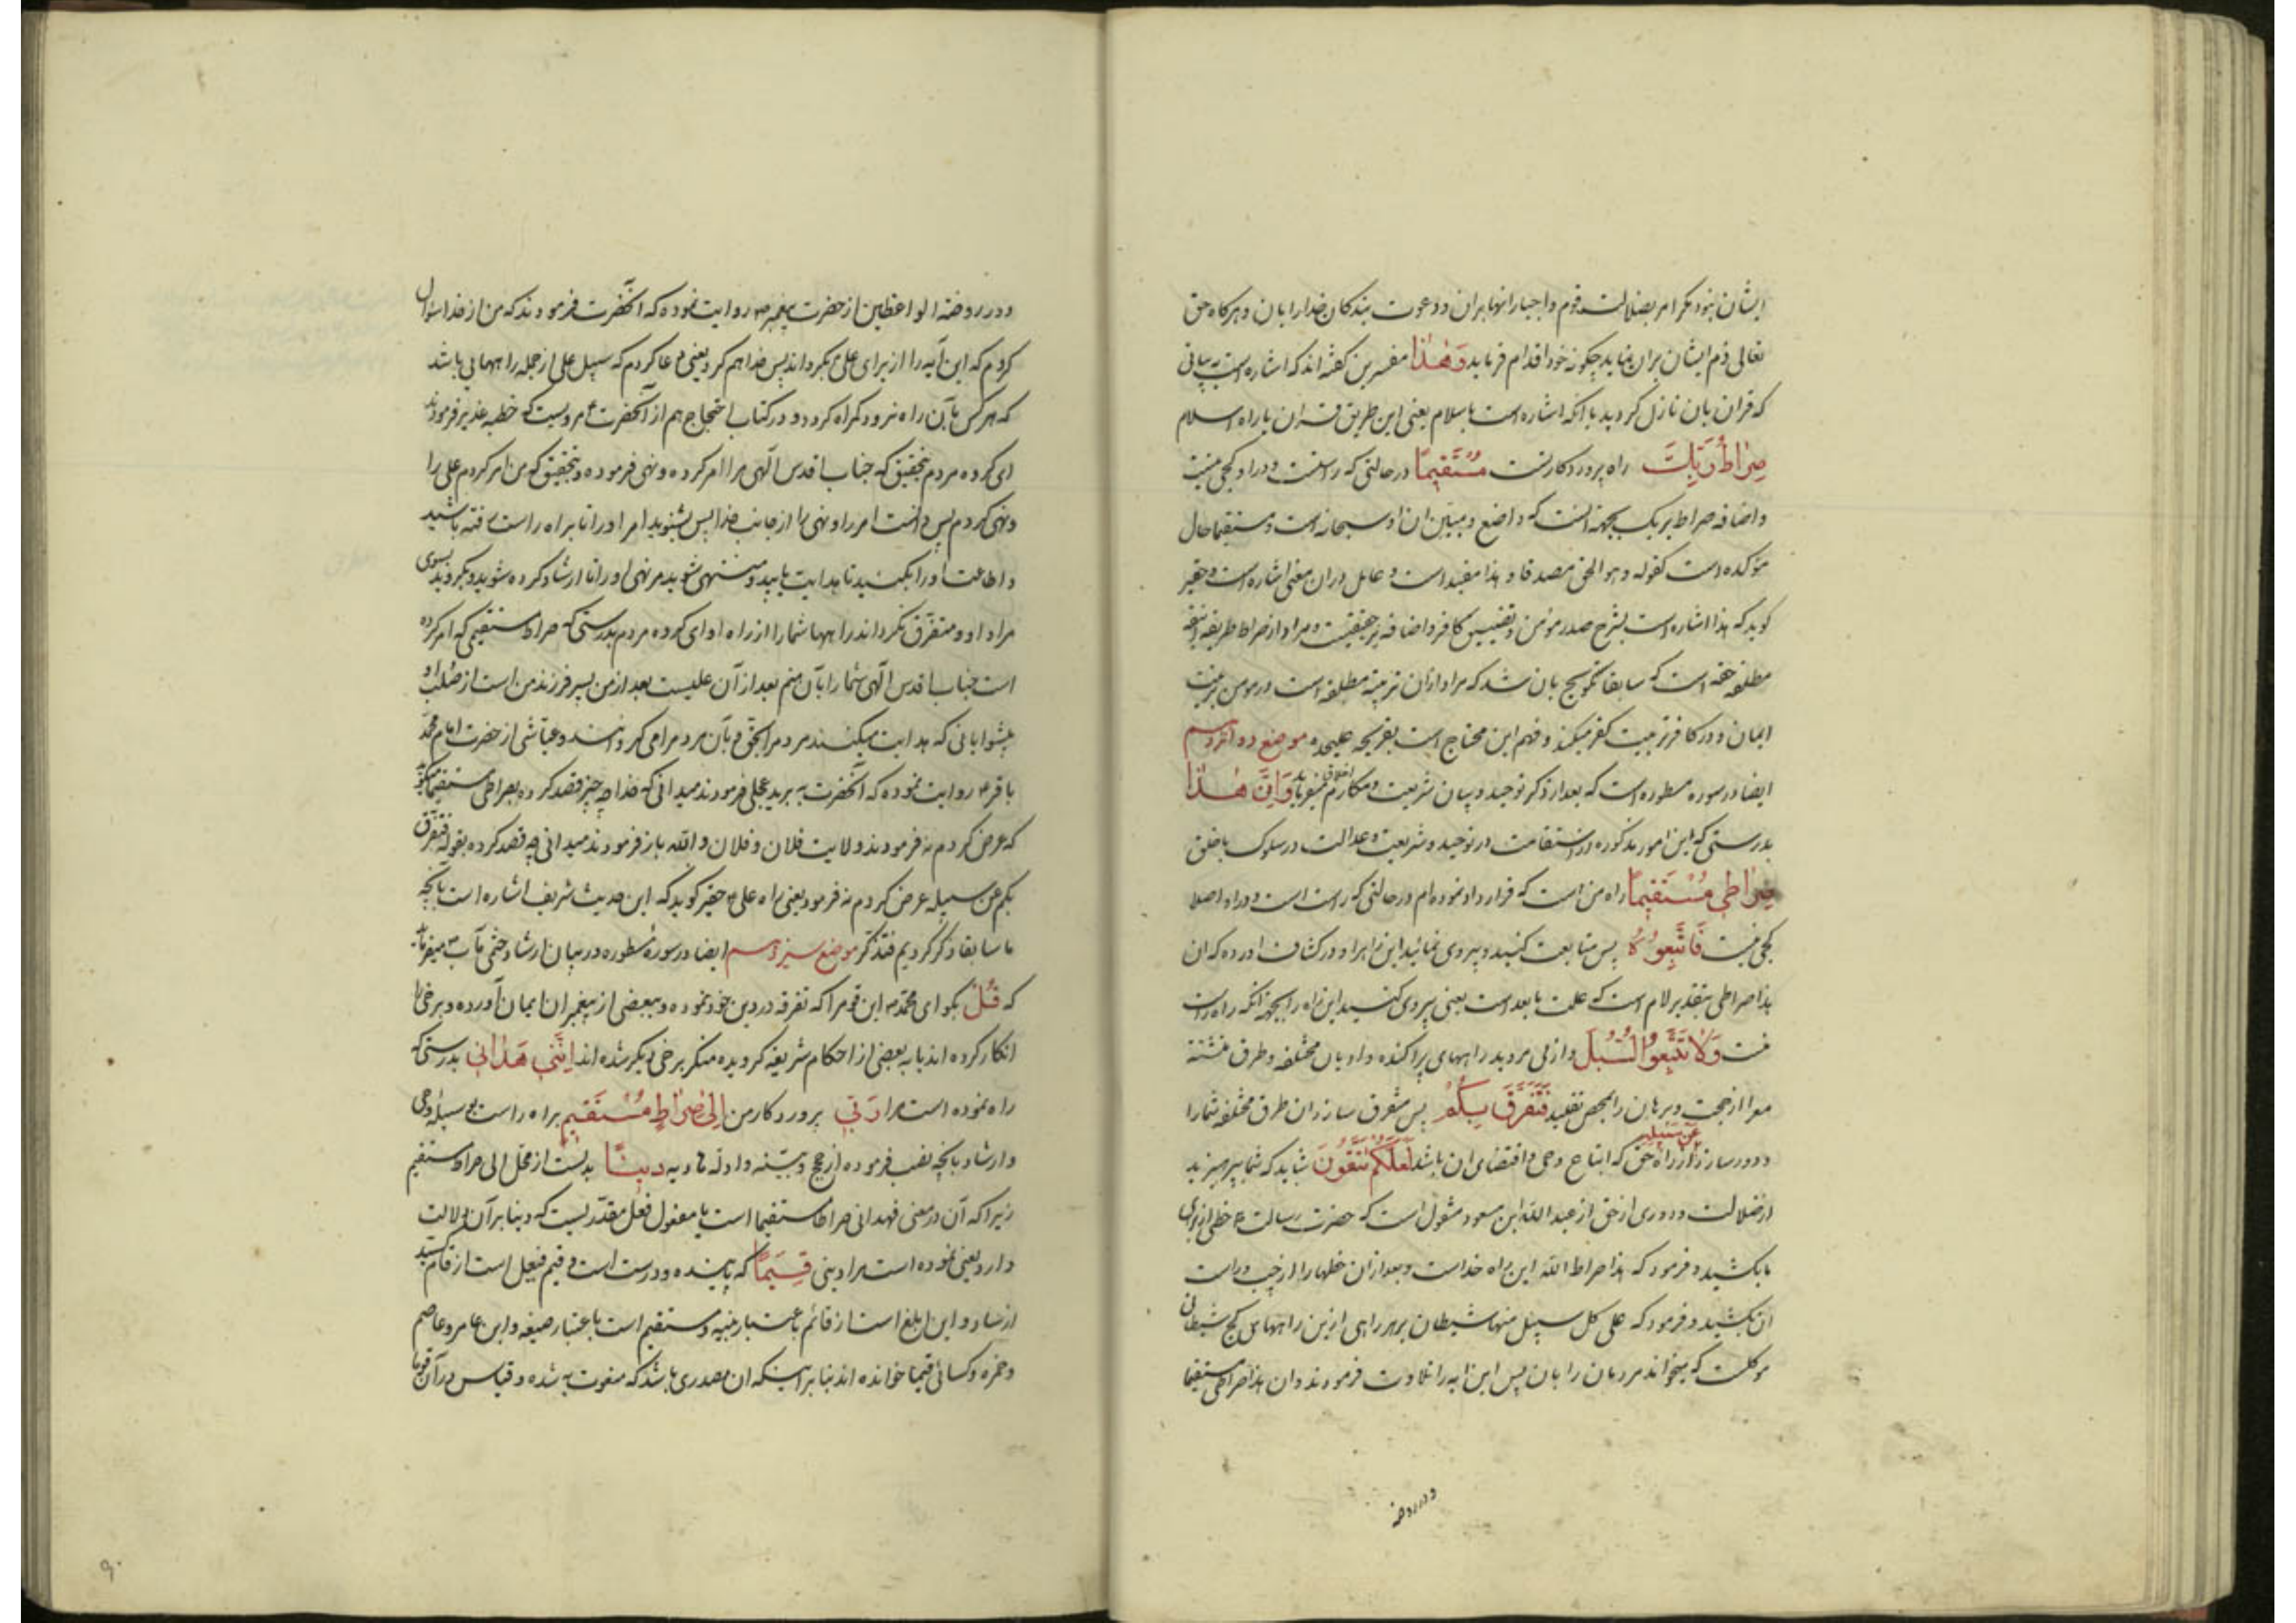 ایشان بنود مکر امر بضلالت قوم و اجبار انها بران و دعوت بندکان خدا را بان و هرکاه حق
تعالی ذم ایشان بران نماید چکونه خود اقدام فرماید وَهٰذا مفسرین کفته اند که اشاره است به بیانی
که قران بان نازل کردید یا انکه اشاره است باسلام یعنی این طریق قران یا راه اسلام
صِراطُ رَبِّكَ راه پروردکار تست مُسْتَقیمًا در حالتی که راستست و در او کجی نیست
و اضافه صراط بربک بجهة انست که واضع و مبین ان او سبحانه است و مستقیما حال
مؤکده است کقوله و هو الحق مصدقا و هذا مفید است و عامل دران معنی اشاره است و حقیر
کوید که هذا اشاره است بشرح صدر مؤمن و تضییق کافر و اضافه بر حقیقتست و مراد از صراط طریقه
مطلقه حقه است که سابقا تلویح بان شد که مراد ازان تربیة مطلقه است در مومن تربیت
ایمان و در کافر تربیت کفر میکند و فهم این محتاج است بقریحه علیحده موضع دوازدهم
ایضا در سوره مسطوره است که بعد از ذکر توحید و بیان شریعت و مکارم اخلاق میفرماید وَاِنَّ هٰذا
بدرستی که این امور مذکوره از استقامت در توحید و شریعت و عدالت در سلوک باخلق
صِراطی مُسْتَقیمًا راه من است که قرار داد نموده ام در حالتی که راست است و در او اصلا
کجی نیست فَاتَّبِعُوهُ پس متابعت کنید و پیروی نمائید این راه را و در کشاف اورده که ان
هذا صراطی بتقدیر لام است که علت ما بعد است یعنی پیروی کنید این راه را بجهة انکه راه راست
منست وَلا تَتَّبِعُوا السُّبُلَ و از پی مروید راههای پراکنده و ادیان مختلفه و طرق متشتته
معرا از حجت و برهان را بمحض تقلید فَتَفَرَّقَ بِکُمْ پس متفرق سازد ان طرق مختلفه شما را
و دور سازد عَنْ سَبیلِهِ از راه حق که اتباع وحی و اقتضای ان باشد لَعَلَّکُمْ تَتَّقُونَ شاید که شما بپرهیزید
از ضلالت و دوری از حق از عبدالله ابن مسعود منقول است که حضرت رسالت ص خطی از برای
ما بکشید و فرمود که هذا صراط الله این راه خداست و بعد ازان خطها را از چپ و راست
ان بکشید و فرمود که علی کل سبیل منها شیطان بر هر راهی ازین راههای کج شیطانی
موکلست که میخواند مردمان را بان پس این ایه را تلاوت فرمودند و ان هذا صراطی مستقیما
و در روضه
و در روضة الواعظین از حضرت پیغمبر ص روایت نموده که آنحضرت فرمودند که من از خدا سؤال
کردم که این آیه را از برای علی بکرداند پس خدا هم کرد یعنی دعا کردم که سبیل علی از جمله راههایی باشد
که هرکس بآن راه نرود کمراه کردد و در کتاب احتجاج هم از آنحضرت مرویست که خطبه غدیر فرمودند
ای کروه مردم بتحقیق که جناب اقدس الٓهی مرا امر کرده و نهی فرموده و بتحقیق که من امر کردم علی را
و نهی کردم پس دانست امر را و نهی را از جانب خدا پس بشنوید امر او را تا براه راست رفته باشید
و اطاعت او را بکنید تا هدایت یابید و منتهی شوید مر نهی او را تا ارشاد کرده شوید و بکروید بسوی
مراد او و متفرق نکرداند راهها شما را از راه او ای کروه مردم بدرستی که صراط مستقیمی که امر کرده
است جناب اقدس الٓهی شما را بآن منم بعد از آن علیست بعد از من پسر فرزند من است از صلب او
پیشوایانی که هدایت میکنند مردم را بحق و بآن مردم را می کروانند و عیاشی از حضرت امام محمد
باقر ع روایت نموده که آنحضرت به برید عجلی فرمودند میدانی که خدا چه چیز قصد کرده بصراطی مستقیما
که عرض کردم نه فرمودند ولایت فلان و فلان و الله باز فرمودند میدانی چه قصد کرده بقوله فتفرق
بکم عن سبیله عرض کردم نه فرمود یعنی راه علی ع حقیر کوید که این حدیث شریف اشاره است بآنچه
ما سابقا ذکر کردیم فتذکر موضع سیزدهم ایضا در سورۀ مسطوره در بیان ارشاد ختمی مآب ص میفرماید
که قُلْ بکو ای محمد ص این قوم را که تفرقه در دین خود نموده و ببعضی از پیغمبران ایمان آورده و برخی را
انکار کرده اند یا به بعضی از احکام شریفه کرویده منکر برخی دیکر شده اند اِنَّنی هَدٰانی بدرستی که
راه نموده است مرا رَبّی پروردکار من اِلیٰ صِراطٍ مُسْتَقیمٍ براه راست بوسیلۀ وحی
و ارشاد بآنچه نصب فرموده از حجج و بینه و ادله هادیه دینًا بدلست از محل الی صراط مستقیم
زیرا که آن در معنی فهدانی صراطا مستقیما است یا مفعول فعل مقدریست که بنابر آن دلالت
دارد یعنی نموده است مرا دینی قَیِّمًا که پاینده و درست است و قیم فیعل است از قام کسید
از ساد و این ابلغ است از قائم باعتبار بنیه و مستقیم است باعتبار صیغه و ابن عامر و عاصم
و حمزه و کسائی قیما خوانده اند بنابر اینکه ان مصدری باشد که منعوت به شده و قیاس در آن قوما
۹۰